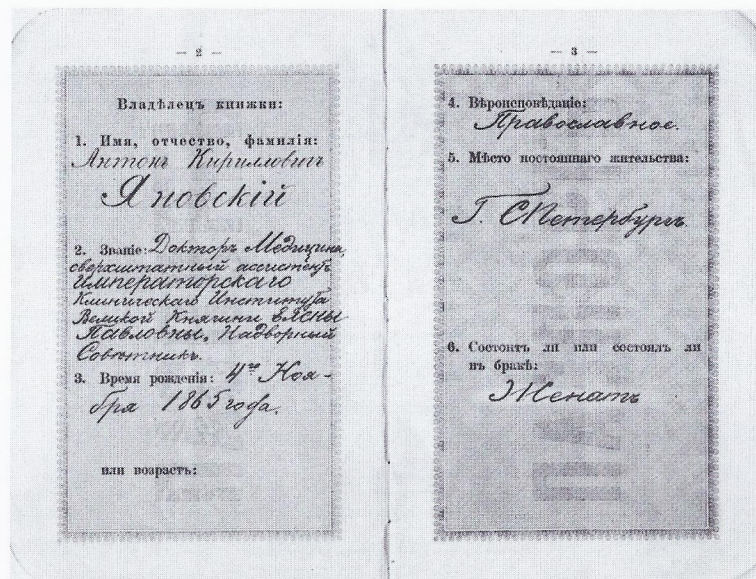 — 2 —
Владѣлецъ книжки:
1. Имя, отчество, фамилія:
Антонъ Кирилловичъ
Яновскій
2. Званіе: Докторъ Медицины,
сверхштатный ассистентъ
Императорскаго
Клиническаго Института
Великой Княгини Елены
Павловны. Надворный
Совѣтникъ.
3. Время рожденія: 4го Ноя-
бря 1865 года.
или возрастъ:
— 3 —
4. Вѣроисповѣданіе:
Православное.
5. Мѣсто постояннаго жительства:
Г. СПетербургъ.
6. Состоитъ ли или состоялъ ли
въ бракѣ:
Женатъ